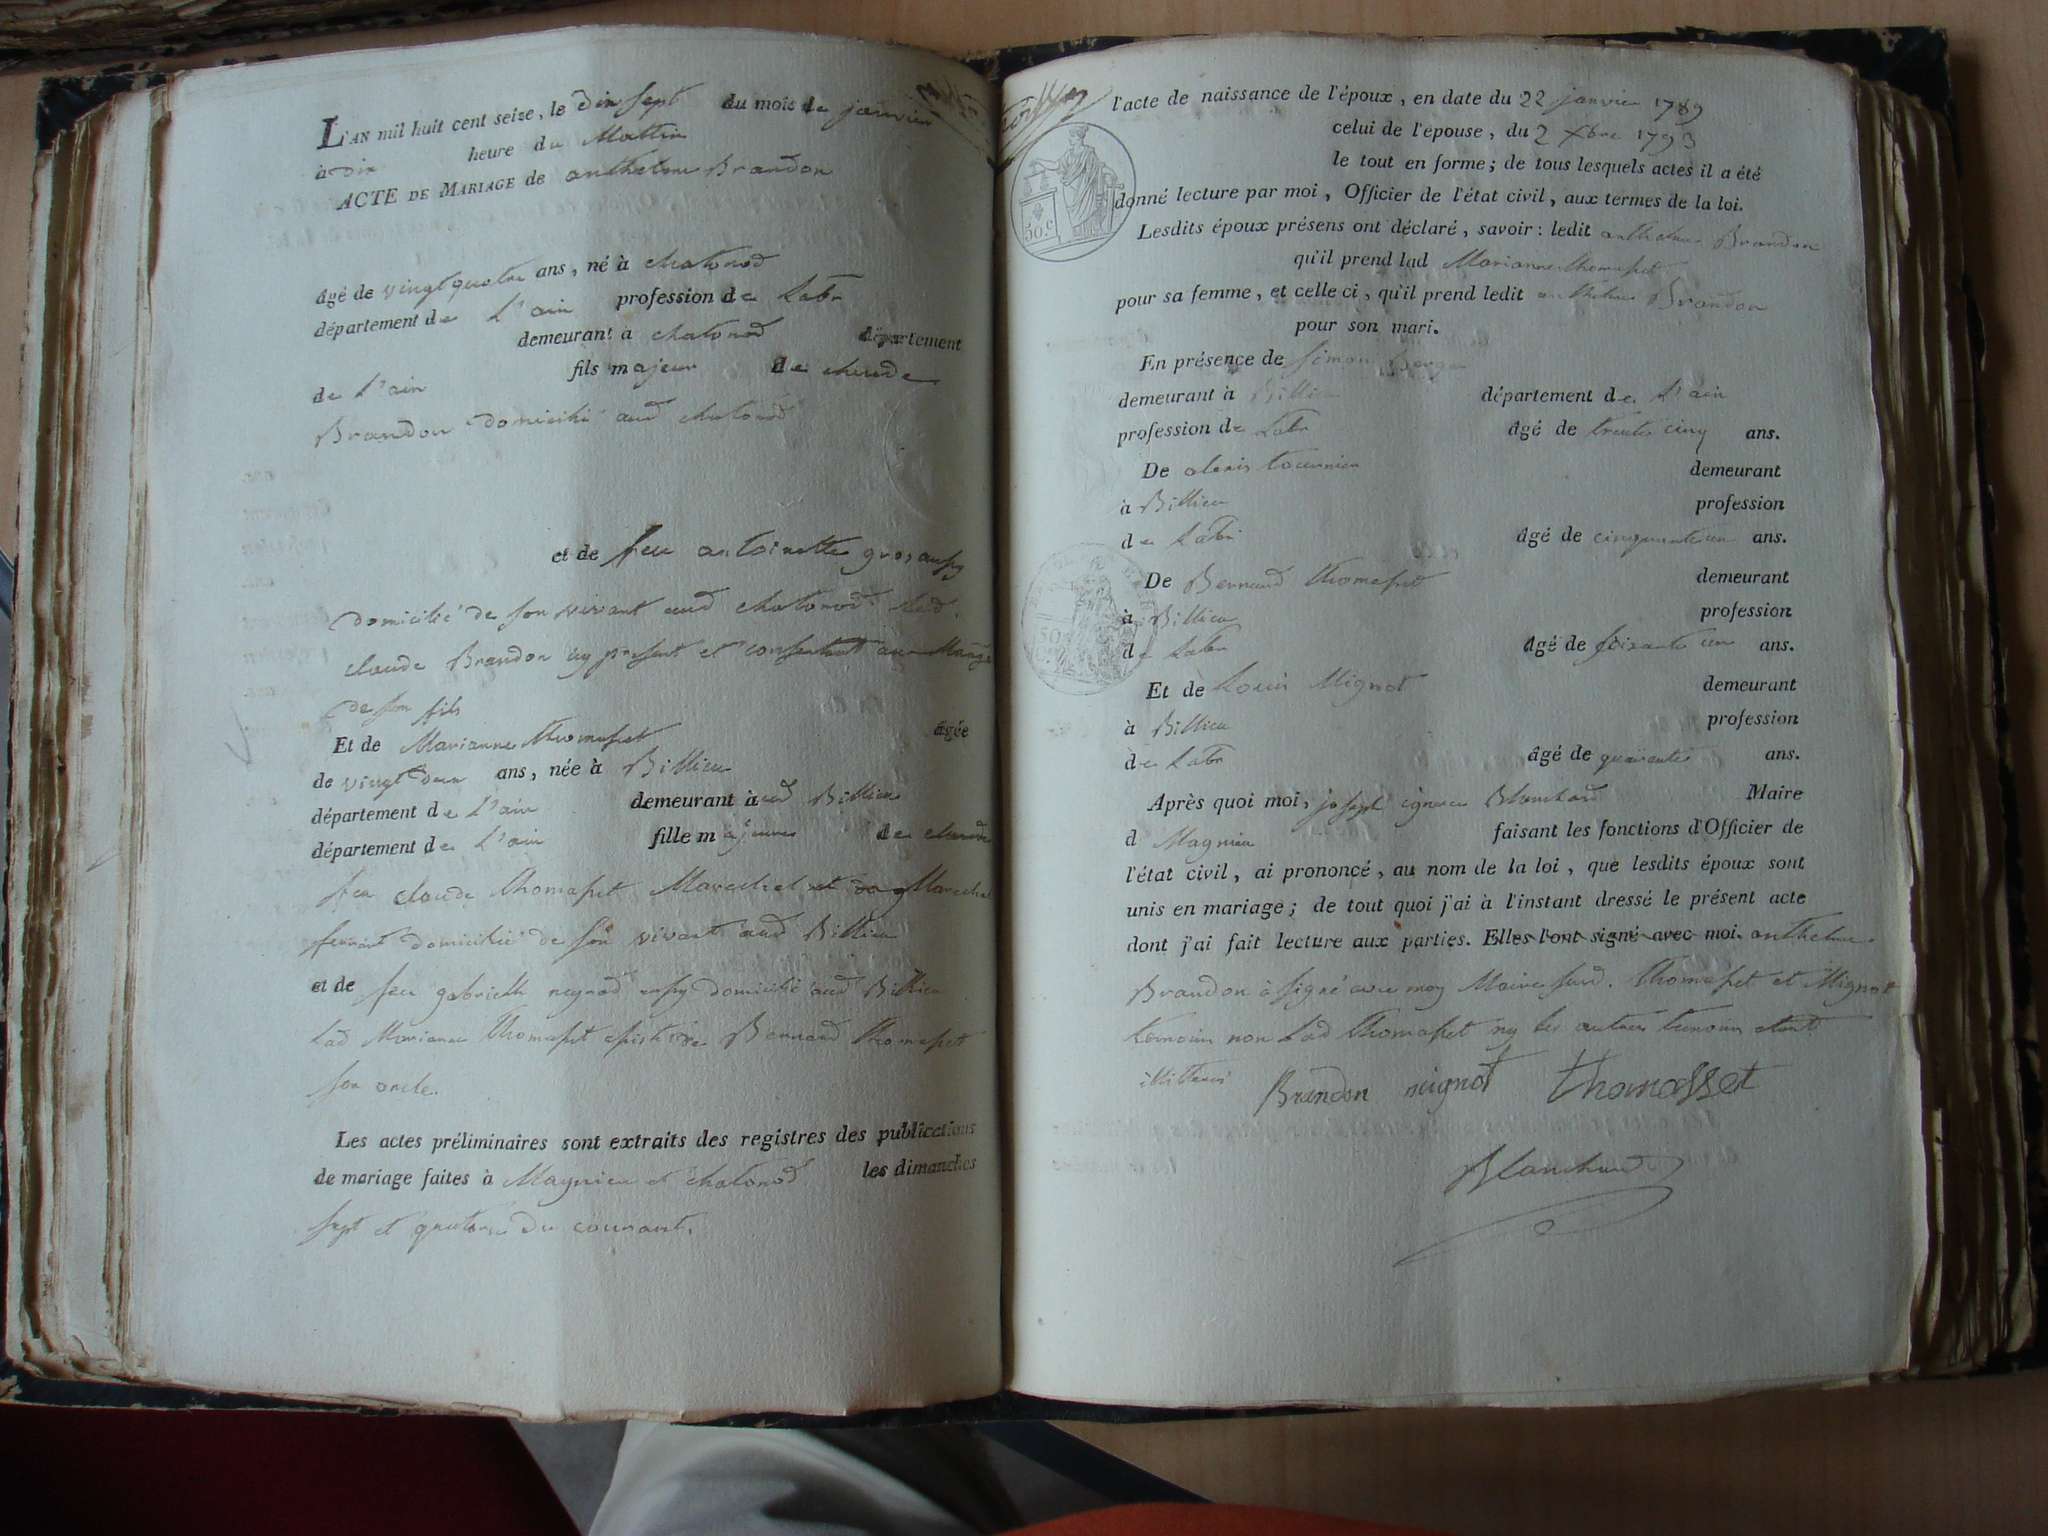 L'AN mil huit cent seize, le dix sept du mois de janvier
à dix heure du Mattin
ACTE DE MARIAGE de anthelme Brandon
âgé de vingt quatre ans, né à chatonod
département de L'ain profession de Labr
demeurant à chatonod département
de L'ain fils majeur de cheude
Brandon domicilié aud chatonod
et de feu antoinette gros
domicilié de son vivant aud chatonod led.
claude Brandon icy present et consentant au
de son fils
Et de Marianne thomasset âgée
de vingt deux ans, née à Billieu
département de L'ain demeurant à aud Billieu
département de L'ain fille majeure de claude
feu claude thomasset Marechal Marechal
ferrant domicilié de son vivant aud Billieu
et de feu gabrielle domicilié aud Billieu
Lad Marianne thomasset de Bernard thomasset
son oncle.
Les actes préliminaires sont extraits des registres des publications
de mariage faites à Magnieu et chatonod les dimanches
sept et quatorze du courant.
l'acte de naissance de l'époux, en date du 22 janvier 1789
celui de l'épouse, du 2 Xbre 1793
le tout en forme; de tous lesquels actes il a été
donné lecture par moi, Officier de l'état civil, aux termes de la loi.
50.c
Lesdits époux présens ont déclaré, savoir: ledit anthelme Brandon
qu'il prend lad Marianne thomasset
pour sa femme, et celle ci, qu'il prend ledit anthelme Brandon
pour son mari.
En présence de simon
demeurant à Billieu département de L'ain
profession de Labr âgé de trente cinq ans.
De alexis tournier demeurant
à Billieu profession
de Labr âgé de cinquante un ans.
De Bernard thomasset demeurant
à Billieu profession
de Labr âgé de soixante un ans.
Et de Louis Mignot demeurant
à Billieu profession
de Labr âgé de quarante ans.
Après quoi moi, joseph ignace Blanchard Maire
d Magnieu faisant les fonctions d'Officier de
l'état civil, ai prononcé, au nom de la loi, que lesdits époux sont
unis en mariage; de tout quoi j'ai à l'instant dressé le présent acte
dont j'ai fait lecture aux parties. Elles l'ont signé avec moi. anthelme
Brandon à signé avec moy Maire susd. thomasset et Mignot
temoins non Lad thomasset ny les autres temoins etant
illitterés Brandon mignot thomasset
Blanchard